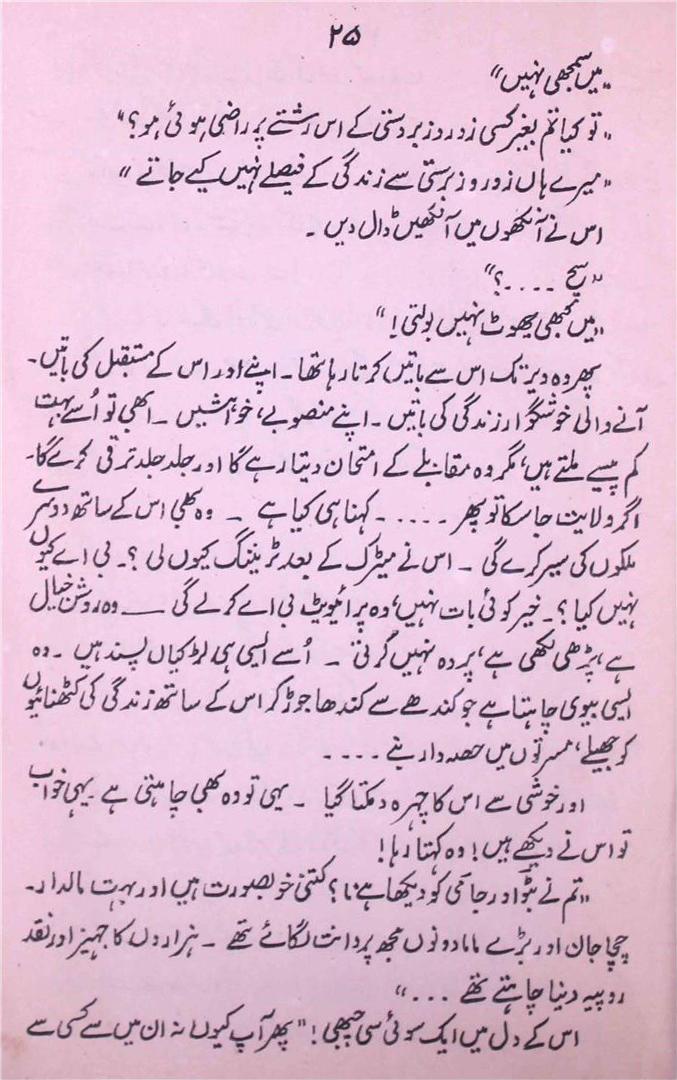 ۲۵
”میں سمجھی نہیں“
”تو کیا تم بغیر کسی زور و زبردستی کے اس رشتے پر راضی ہوئی ہو؟“
”میرے ہاں زور و زبرستی سے زندگی کے فیصلے نہیں کیے جاتے“
اس نے آنکھوں میں آنکھیں ڈال دیں ۔
”سچ ....؟“
”میں کبھی جھوٹ نہیں بولتی!“
پھر وہ دیر تک اس سے باتیں کرتا رہا تھا ۔ اپنے اور اس کے مستقبل کی باتیں ۔
آنے والی خوشگوار زندگی کی باتیں ۔ اپنے منصوبے، خواہشیں ۔ ابھی تو اُسے بہت
کم پیسے ملتے ہیں، مگر وہ مقابلے کے امتحان دیتا رہے گا اور جلد جلد ترقی کرے گا ۔
اگر ولایت جا سکا تو پھر ..... ۔ کہنا ہی کیا ہے ۔ وہ بھی اس کے ساتھ دوسرے
ملکوں کی سیر کرے گی ۔ اس نے میٹرک کے بعد ٹریننگ کیوں لی ؟ ۔ بی اے کیوں
نہیں کیا ؟ ۔ خیر کوئی بات نہیں، وہ پرائیویٹ بی اے کر لے گی ــــ وہ روشن خیال
ہے، پڑھی لکھی ہے، پردہ نہیں کرتی ۔ اُسے ایسی ہی لڑکیاں پسند ہیں ۔ وہ
ایسی بیوی چاہتا ہے جو کندھے سے کندھا جوڑ کر اس کے ساتھ زندگی کی کٹھنائیوں
کو جھیلے، مسرتوں میں حصہ دار بنے ....
اور خوشی سے اس کا چہرہ دمکتا گیا ۔ یہی تو وہ بھی چاہتی ہے ۔ یہی خواب
تو اس نے دیکھے ہیں! وہ کہتا رہا!
”تم نے بٹو اور جامی کو دیکھا ہے نا؟ کتنی خوبصورت ہیں اور بہت مالدار ۔
چچا جان اور بڑے ماما دونوں مجھ پر دانت لگائے تھے ۔ ہزاروں کا جہیز اور نقد
روپیہ دینا چاہتے تھے ...“
اس کے دل میں ایک سوئی سی چبھی! ”پھر آپ کیوں نہ ان میں سے کسی سے